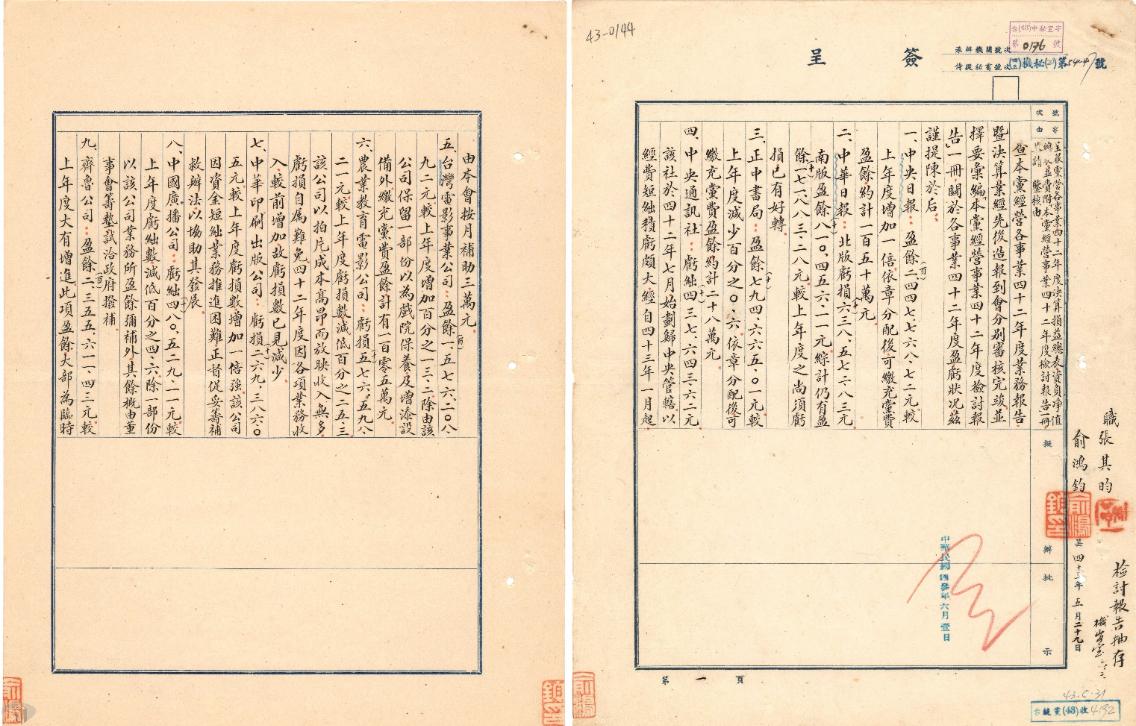 43-0144
簽呈
台(43)中秘室字
第0176號
承辦機關號次
(四三)機秘(乙)第54-47號
號次
事由
呈報黨營各事業四十二年度決算損益總表資負淨值
擬辦
批示
查本黨經營各事業四十二年度業務報告
暨決算業經先後造報到會分別審核完竣並
擇要彙編本黨經營事業四十二年度檢討報
告一冊關於各事業四十二年度盈虧狀況茲
謹提陳於后：
一、中央日報：盈餘二四四七七六八・七二元較
上年度增加一倍依章分配後可繳充黨費
盈餘約計一百五十萬元
二、中華日報：北版虧損六三八五七二・八三元
南版盈餘八一〇、四五六・二一元綜計仍有盈
餘一七一八八三・三八元較上年度之尚須虧
損已有好轉
三、正中書局：盈餘七九四、六六五・〇一元較
上年度減少百分之〇・六依章分配後可
繳充黨費盈餘約計二十八萬元
四、中央通訊社：虧絀四三七、六四三・六二元
該社於四十二年七月始劃歸中央管轄以
經費短絀積虧頗大經自四十三年一月起
職張其昀
俞鴻鈞
呈四十三年五月二十九日
檢討報告抽存
機資室
中華民國四參年六月壹日
第一頁
43.5.31
台經業(43)收4192
由本會按月補助三萬元
五、台灣電影事業公司：盈餘一、五七六、二〇八・
九二元較上年度增加百分之一三・二除由該
公司保留一部份以為戲院保養及增添設
備外繳充黨費盈餘計有一百零五萬元
六、農業教育電影公司：虧損五七六、五九八・
二一元較上年度虧損數減低百分之二五・三
該公司以拍片成本高昂而放映收入無多
虧損自為難免四十二年度因各項業務收
入較前增加故虧損數已見減少
七、中華印刷出版公司：虧損二六九、三八六・〇
五元較上年度虧損數增加一倍強該公司
因資金短絀業務推進困難正督促妥籌補
救辦法以協助其發展
八、中國廣播公司：虧絀四八〇、五二九・二一元較
上年度虧絀數減低百分之四六除一部份
以該公司業務所盈餘彌補外其餘概由董
事會籌墊試洽政府撥補
九、齊魯公司：盈餘二、三五五、六一一・四三元較
上年度大有增進此項盈餘大部為臨時